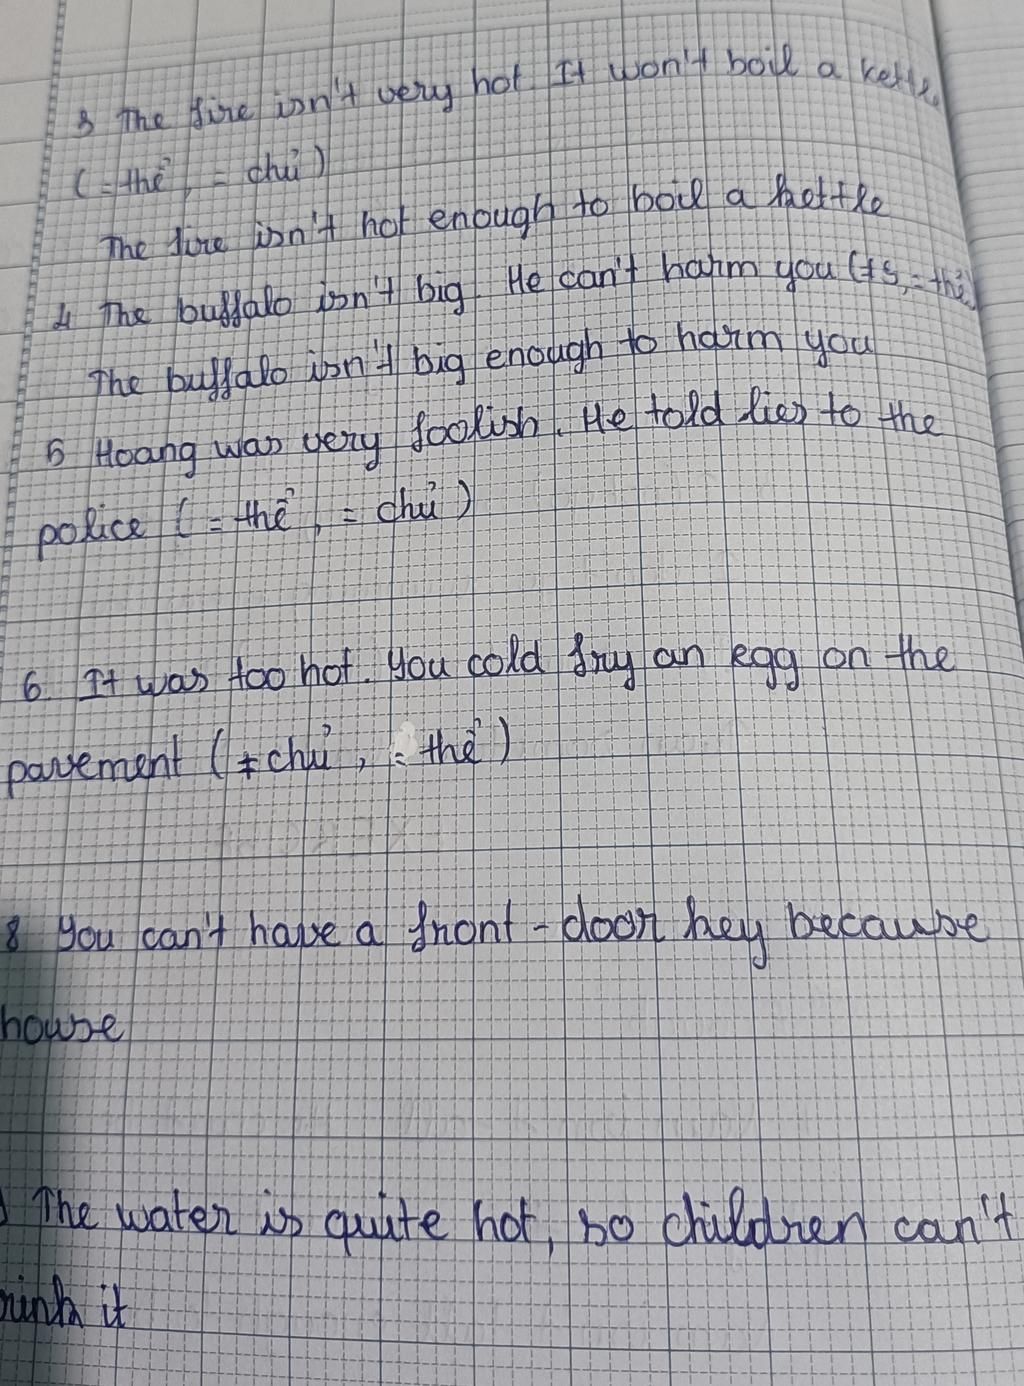 3 The fire isn't very hot. It won't boil a kettle.
(= thể, = chủ)
The fire isn't hot enough to boil a kettle
4 The buffalo isn't big. He can't harm you (+S, = thể)
The buffalo isn't big enough to harm you
5 Hoang was very foolish. He told lies to the
police (= thể, = chủ)
6. It was too hot. You cold fry an egg on the
pavement (≠ chủ, = thể)
8 You can't have a front-door key because
house
The water is quite hot, so children can't
rink it